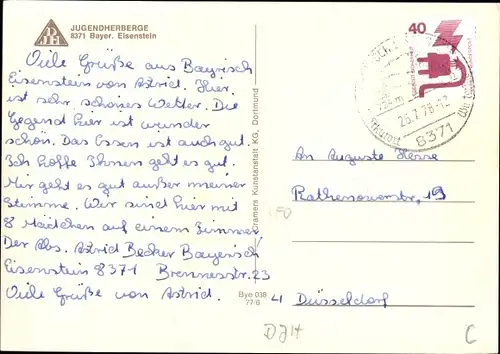 JUGENDHERBERGE
8371 Bayer. Eisenstein
Viele Grüße aus Bayrisch
Eisenstein von Astrid. Hier
ist sehr schönes Wetter. Die
Gegend hier ist wunder
schön. Das Essen ist auch gut.
Ich hoffe Ihnen geht es gut.
Mir geht es gut außer meiner
Stimme. Wir sind hier mit
8 Mädchen auf einem Zimmer.
Der Abs. Astrid Becker Bayerisch
Eisenstein 8371 Brennesstr. 23
Viele Grüße von Astrid.
Cramers Kunstanstalt KG, Dortmund
Bye 038
77/6
40
724m
26.7.78-12
8371
An Auguste Hesse
Rathenowerstr. 19
4 Düsseldorf
DJH
C